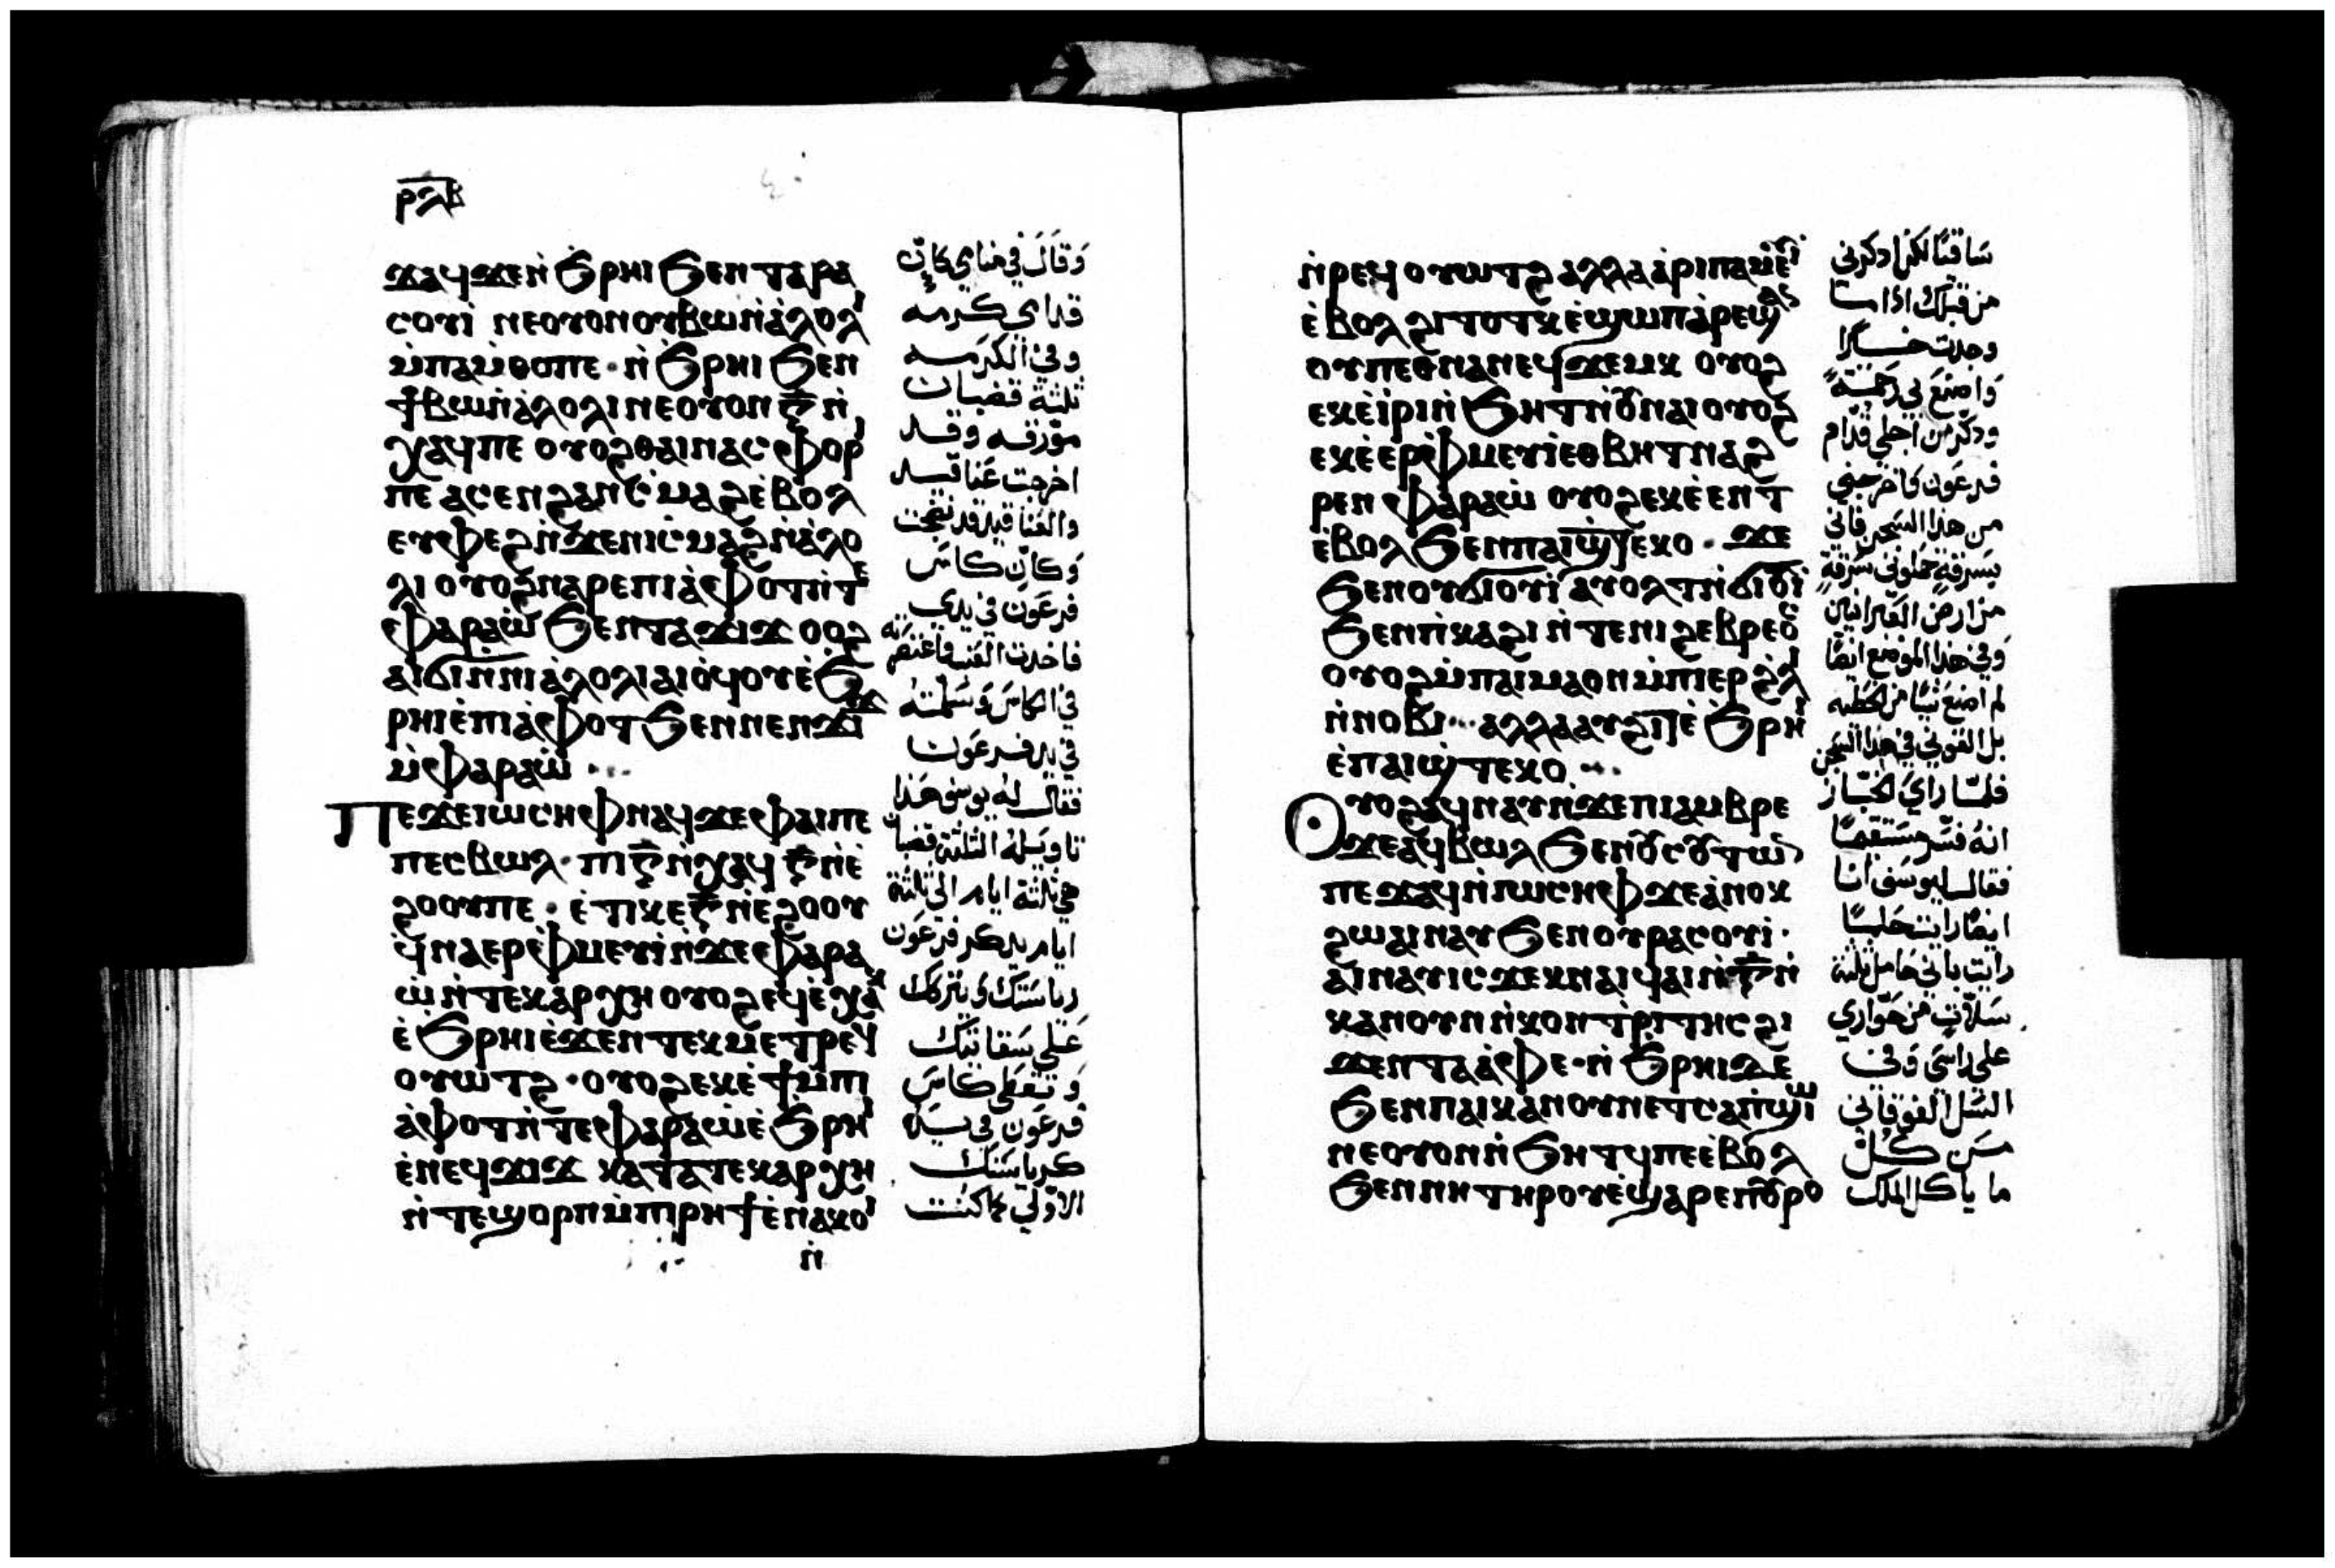 ⲣⲗⲃ
ϫⲁϥϫⲉⲛ̀ϧⲣⲏⲓϧⲉⲛⲧⲁⲣⲁ
ⲥⲟⲩⲓ̀ ⲛⲉⲟⲩⲟⲛⲟⲩⲃⲱⲛ̀ⲁ̀ⲗⲟⲗⲓ
ⲙ̀ⲡⲁⲙ̀ⲑⲟⲡⲉ · ⲛ̀ϧⲣⲏⲓϧⲉⲛ
ϯⲃⲱⲛ̀ⲁ̀ⲗⲟⲗⲓⲛⲉⲟⲩⲟⲛⲅ̅ⲛ̀
ⲭⲁϥⲡⲉ ⲟⲩⲟϩⲑⲁⲓⲛⲁⲥⲫⲟⲣⲓ
ⲡⲉ ⲁⲥⲉⲛϩⲁⲛⲥ̀ⲙⲁϩⲉ̀ⲃⲟⲗ
ⲉⲩⲫⲉϩⲛ̀ϫⲉⲛⲓⲥ̀ⲙⲁϩⲛ̀ⲁ̀ⲗⲟ
ⲗⲓ ⲟⲩⲟϩⲛⲁⲣⲉⲡⲓⲁ̀ⲫⲟⲧⲛ̀ⲧⲉ
ⲫⲁⲣⲁⲱ̀ϧⲉⲛⲧⲁϫⲓϫ ⲟⲟϩ
ⲁⲓϭⲓⲛ̀ⲛⲓⲁ̀ⲗⲟⲗⲓⲁⲓⲟ̀ϥⲟⲩⲉ̀ϧ
ⲣⲏⲓⲉ̀ⲡⲓⲁ̀ⲫⲟⲧϧⲉⲛⲛⲉⲛϫⲓϫ
ⲙ̀ⲫⲁⲣⲁⲱ̀ ·..
Ⲡⲉϫⲉⲓⲱⲥⲏⲫⲛⲁϥϫⲉⲫⲁⲓⲡⲉ
ⲡⲉⲥⲃⲱⲗ · ⲡⲓⲅ̅ⲛ̀ⲭⲁϥ ⲅ̅ⲛ̀ⲉ̀
ϩⲟⲟⲩⲡⲉ · ⲉ̀ⲧⲓⲕⲉⲅ̅ⲛ̀ⲉϩⲟⲟⲩ
ϥ̀ⲛⲁⲉⲣⲫ̀ⲙⲉⲩⲓ̀ⲛ̀ϫⲉⲫⲁⲣⲁ
ⲱ̀ⲛ̀ⲧⲉⲕⲁⲣⲭⲏ ⲟⲩⲟϩⲉϥⲉ̀ⲭⲁⲕ
ⲉ̀ϧⲣⲏⲓⲉ̀ϫⲉⲛⲧⲉⲕⲙⲉⲧⲣⲉϥ
ⲟⲩⲱⲧϩ · ⲟⲩⲟϩⲉⲕⲉ̀ϯⲙ̀ⲡⲓ
ⲁ̀ⲫⲟⲧⲛ̀ⲧⲉⲫⲁⲣⲁⲱ̀ⲉ̀ϧⲣⲏⲓ
ⲉ̀ⲛⲉϥϫⲓϫ ⲕⲁⲧⲁⲧⲉⲕⲁⲣⲭⲏ
ⲛ̀ⲧⲉϣⲟⲣⲡⲙ̀ⲡⲓⲣⲏϯⲉ̀ⲛⲁⲕⲟⲓ
ⲛ̀
وَقَالَ في منامي كان
قدامى كرمه
وفي الكرمه
ثلثة قضبان
مورقه وقد
اخرجت عناقيد
والعناقيد قد نضجت
وَكان كاس
فرعَون في يدي
فاخدت العنب واعتصرته
في الكاس وسَلمته
في يد فرعَون
فقال له يوسف هَذا
تاويله الثلثة قضبان
هي ثلثة ايام الى ثلثة
ايام يدكر فرعَون
رياستك ويتركك
عَلى سقايتك
وَتعطى كاس
فرعَون في يده
كرياستك
الاولى كما كنت
ⲛ̀ⲣⲉϥⲟⲩⲱⲧϩ ⲁⲗⲗⲁⲁ̀ⲣⲓⲡⲁⲙⲉⲩⲓ̀
ⲉ̀ⲃⲟⲗϩⲓⲧⲟⲧⲕ ⲉ̀ϣⲱⲡⲁ̀ⲣⲉϣⲁⲛ
ⲟⲩⲡⲉⲑⲛⲁⲛⲉϥϫⲉⲙⲕ ⲟⲩⲟϩ
ⲉⲕⲉ̀ⲓ̀ⲣⲓⲛ̀ϧⲏⲧⲛ̀ⲟ̅ⲛⲁⲓⲟⲩⲟϩ
ⲉⲕⲉ̀ⲉⲣⲫ̀ⲙⲉⲩⲓ̀ⲉⲑⲃⲏⲧⲛⲁϩ
ⲣⲉⲛ ⲫⲁⲣⲁⲱ̀ ⲟⲩⲟϩⲉⲕⲉ̀ⲉⲛⲧ
ⲉ̀ⲃⲟⲗϧⲉⲛⲡⲁⲓϣ̀ⲧⲉⲕⲟ · ϫⲉ
ϧⲉⲛⲟⲩϭⲓⲟⲩⲓ̀ ⲁⲩⲟⲗⲧⲛ̀ϭⲓⲟⲩⲓ̀
ϧⲉⲛⲡ̀ⲕⲁϩⲓⲛ̀ⲧⲉⲛⲓϩⲉⲃⲣⲉⲟⲥ
ⲟⲩⲟϩⲙ̀ⲡⲁⲓⲙⲁⲟⲛⲙ̀ⲡⲓⲉⲣϩ̀ⲗⲓ
ⲛ̀ⲛⲟⲃⲓ ·.. ⲁⲗⲗⲁⲁⲩϩⲓⲧⲉ̀ϧⲣⲏⲓ
ⲉ̀ⲡⲁⲓϣ̀ⲧⲉⲕⲟ ·..
Ⲟⲩⲟϩⲁϥⲛⲁⲩⲛ̀ϫⲉⲡⲓⲁⲙⲃⲣⲉ
ϫⲉⲁϥⲃⲱⲗϧⲉⲛⲟⲩⲥⲟⲩⲧⲱⲛ
ⲡⲉϫⲁϥⲛ̀ⲓⲱⲥⲏⲫϫⲉⲁ̀ⲛⲟⲕ
ϩⲱⲁⲓⲛⲁⲩϧⲉⲛⲟⲩⲣⲁⲥⲟⲩⲓ̀ ·
ⲁⲓⲛⲁⲩⲓⲥϫⲉⲕⲛⲁⲓϥⲁⲓⲛ̀ⲅ̅ⲛ̀
ⲕⲁⲛⲟⲩⲛⲛ̀ⲭⲟⲛⲧⲣⲓⲧⲏⲥϩⲓ
ϫⲉⲛⲧⲁⲁ̀ⲫⲉ · ⲛ̀ϧⲣⲏⲓⲇⲉ
ϧⲉⲛⲡⲁⲓⲕⲁⲛⲟⲩⲛⲉⲧⲥⲁⲡ̀ϣⲱⲓ
ⲛⲉⲟⲩⲟⲛⲛ̀ϧⲏⲧϥⲡⲉⲉ̀ⲃⲟⲗ
ϧⲉⲛⲛⲏⲧⲏⲣⲟⲩⲉ̀ϣⲁⲣⲉⲡⲟⲩⲣⲟ
سَاقيًا لكن ادكرنى
من قبلك اذا
وجدت خيرًا
وَاصنع بي رَحمَةً
ودكر من اجلي قدام
فرعَون واخرجني
من هذا السجن فانى
بسرقةٍ حملوني سرقةً
من ارض العبرانيين
وفي هذا الموضع ايضًا
لم اصنع شيًا من الخطيه
بل القوني في هذا السجن
فلما راي الخباز
انه فسر مستقيمًا
فقال ليوسف انا
ايضًا رايت حلمًا
رايت باني حامل ثلثة
سَلاتٍ من حواري
على راسى وفى
السَل الفوقاني
من كل
ما ياكل الملك